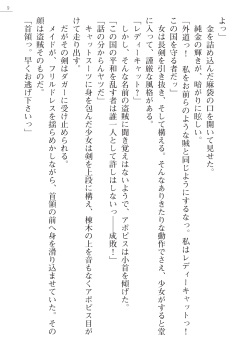 9
よっ」
金を詰め込んだ麻袋の口を開いて見せた。
純金の輝きが、暗がりに眩しい。
「外道っ！　私をお前らのような賊と同じようにするなっ。私はレディーキャットっ！
この国を守る者だっ」
女は長剣を引き抜き、そして構える。そんなありきたりな動作でさえ、少女がすると堂
に入って、謹厳な風格がある。
レディーキャット？
しかし、そんな名前の盗賊に聞き覚えはないようで、アポピスは小首を傾げた。
「この国の平和を乱す者は誰一人として許しはしないっ――成敗！」
「話の分からんヤツだ」
キャットスーツに身を包んだ少女は剣を上段に構え、棟木の上を音もなくアポピス目が
けて走り出す。
だがその剣はダガーに受け止められる。
メイドが、フリルドレスを揺らめかしながら、首領の前へ身を滑り込ませていた。その
顔は盗賊そのものだ。
「首領っ。早くお逃げ下さいっ」